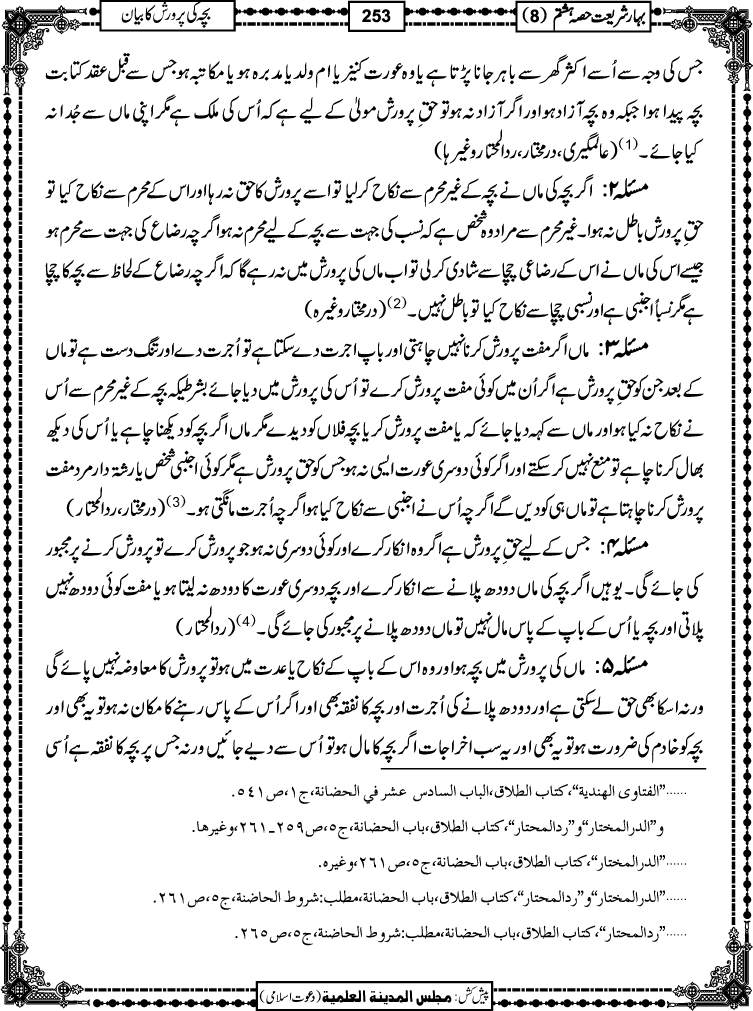 بہارِ شریعت حصہ ہشتم (8)
253
بچہ کی پرورش کا بیان
جس کی وجہ سے اُسے اکثر گھر سے باہر جانا پڑتا ہے یا وہ عورت کنیز یا ام ولد یا مدبرہ ہو یا مکاتبہ ہو جس سے قبل عقد کتابت
بچہ پیدا ہوا جبکہ وہ بچہ آزاد ہو اور اگر آزاد نہ ہو تو حقِ پرورش مولیٰ کے لیے ہے کہ اُس کی ملک ہے مگر اپنی ماں سے جُدا نہ
کیا جائے۔(1) (عالمگیری، درمختار، ردالمحتار وغیرہا)
مسئلہ ۲: اگر بچہ کی ماں نے بچہ کے غیر محرم سے نکاح کر لیا تو اسے پرورش کا حق نہ رہا اور اس کے محرم سے نکاح کیا تو
حقِ پرورش باطل نہ ہوا۔ غیر محرم سے مراد وہ شخص ہے کہ نسب کی جہت سے بچہ کے لیے محرم نہ ہو اگرچہ رضاع کی جہت سے محرم ہو
جیسے اس کی ماں نے اس کے رضاعی چچا سے شادی کر لی تو اب ماں کی پرورش میں نہ رہے گا کہ اگرچہ رضاع کے لحاظ سے بچہ کا چچا
ہے مگر نسباً اجنبی ہے اور نسبی چچا سے نکاح کیا تو باطل نہیں۔(2) (درمختار وغیرہ)
مسئلہ ۳: ماں اگر مفت پرورش کرنا نہیں چاہتی اور باپ اجرت دے سکتا ہے تو اُجرت دے اور تنگ دست ہے تو ماں
کے بعد جن کو حقِ پرورش ہے اگر اُن میں کوئی مفت پرورش کرے تو اُس کی پرورش میں دیا جائے بشرطیکہ بچہ کے غیر محرم سے اُس
نے نکاح نہ کیا ہو اور ماں سے کہہ دیا جائے کہ یا مفت پرورش کر یا بچہ فلاں کو دیدے مگر ماں اگر بچہ کو دیکھنا چاہے یا اُس کی دیکھ
بھال کرنا چاہے تو منع نہیں کر سکتے اور اگر کوئی دوسری عورت ایسی نہ ہو جس کو حق پرورش ہے مگر کوئی اجنبی شخص یا رشتہ دار مرد مفت
پرورش کرنا چاہتا ہے تو ماں ہی کو دیں گے اگرچہ اُس نے اجنبی سے نکاح کیا ہو اگرچہ اُجرت مانگتی ہو۔(3) (درمختار، ردالمحتار)
مسئلہ ۴: جس کے لیے حقِ پرورش ہے اگر وہ انکار کرے اور کوئی دوسری نہ ہو جو پرورش کرے تو پرورش کرنے پر مجبور
کی جائے گی۔ یوہیں اگر بچہ کی ماں دودھ پلانے سے انکار کرے اور بچہ دوسری عورت کا دودھ نہ لیتا ہو یا مفت کوئی دودھ نہیں
پلاتی اور بچہ یا اُس کے باپ کے پاس مال نہیں تو ماں دودھ پلانے پر مجبور کی جائے گی۔(4) (ردالمحتار)
مسئلہ ۵: ماں کی پرورش میں بچہ ہو اور وہ اس کے باپ کے نکاح یا عدت میں ہو تو پرورش کا معاوضہ نہیں پائے گی
ورنہ اسکا بھی حق لے سکتی ہے اور دودھ پلانے کی اُجرت اور بچہ کا نفقہ بھی اور اگر اُس کے پاس رہنے کا مکان نہ ہو تو یہ بھی اور
بچہ کو خادم کی ضرورت ہو تو یہ بھی اور یہ سب اخراجات اگر بچہ کا مال ہو تو اُس سے دیے جائیں ورنہ جس پر بچہ کا نفقہ ہے اُسی
......"الفتاوی الهندية"، کتاب الطلاق، الباب السادس عشر في الحضانة، ج۱، ص۵٤۱.
و"الدرالمختار" و"ردالمحتار"، کتاب الطلاق، باب الحضانة، ج۵، ص۲۵۹۔۲٦۱، وغيرها.
......"الدرالمختار"، کتاب الطلاق، باب الحضانة، ج۵، ص۲٦۱، وغيره.
......"الدرالمختار" و"ردالمحتار"، کتاب الطلاق، باب الحضانة، مطلب: شروط الحاضنة، ج۵، ص۲٦۱.
......"ردالمحتار"، کتاب الطلاق، باب الحضانة، مطلب: شروط الحاضنة، ج۵، ص۲٦۵.
پیش کش: مجلس المدینة العلمیة (دعوت اسلامی)